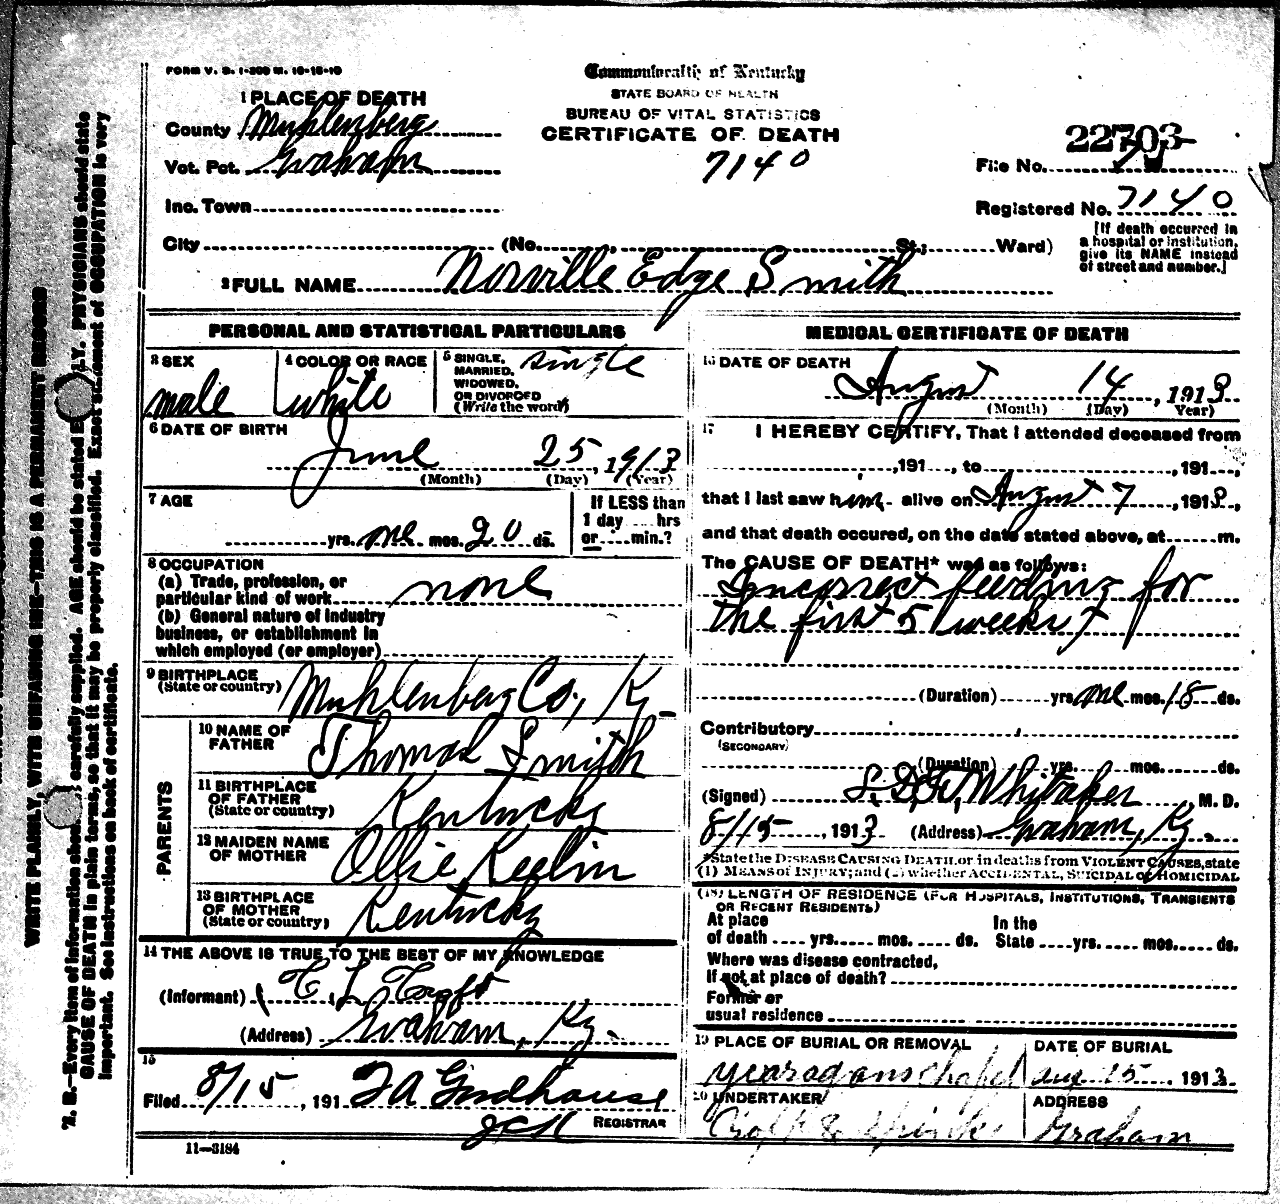 FORM V. S. 1-200 M. 10-18-10
Commonwealth of Kentucky
STATE BOARD OF HEALTH
BUREAU OF VITAL STATISTICS
CERTIFICATE OF DEATH
7140
1 PLACE OF DEATH
County Muhlenberg
Vot. Pct. Graham
Inc. Town
City (No. , St.; Ward)
22703
File No.
Registered No. 7140
[If death occurred in
a hospital or institution,
give its NAME instead
of street and number.]
2 FULL NAME Norville Edge Smith
PERSONAL AND STATISTICAL PARTICULARS
3 SEX
male
4 COLOR OR RACE
white
5 SINGLE, MARRIED, WIDOWED, OR DIVORCED (Write the word)
single
6 DATE OF BIRTH
June 25, 1913
(Month) (Day) (Year)
7 AGE
yrs. one mos. 20 ds.
If LESS than
1 day hrs
or min.?
8 OCCUPATION
(a) Trade, profession, or
particular kind of work none
(b) General nature of industry
business, or establishment in
which employed (or employer)
9 BIRTHPLACE
(State or country) Muhlenberg Co, Ky
PARENTS
10 NAME OF
FATHER Thomas Smith
11 BIRTHPLACE
OF FATHER
(State or country) Kentucky
12 MAIDEN NAME
OF MOTHER Ollie
13 BIRTHPLACE
OF MOTHER
(State or country) Kentucky
14 THE ABOVE IS TRUE TO THE BEST OF MY KNOWLEDGE
(Informant) C L
(Address) Graham, Ky.
15
Filed 8/15, 191 J A Goodhouse
REGISTRAR
11—3184
MEDICAL CERTIFICATE OF DEATH
16 DATE OF DEATH
August 14, 1913
(Month) (Day) Year)
17 I HEREBY CERTIFY, That I attended deceased from
, 191 , to , 191 ,
that I last saw him alive on August 7, 1913,
and that death occured, on the date stated above, at m.
The CAUSE OF DEATH* was as follows:
Incorrect feeding for
the first 5 weeks
(Duration) yrs one mos. 18 ds.
Contributory
(SECONDARY)
(Duration) yrs. mos. ds.
(Signed) Whitaker, M. D.
8/15, 1913 (Address) Graham, Ky.
*State the DISEASE CAUSING DEATH, or in deaths from VIOLENT CAUSES, state
(1) MEANS OF INJURY; and (2) whether ACCIDENTAL, SUICIDAL or HOMICIDAL
(18) LENGTH OF RESIDENCE (FOR HOSPITALS, INSTITUTIONS, TRANSIENTS
OR RECENT RESIDENTS)
At place
of death yrs. mos. ds.
In the
State yrs. mos. ds.
Where was disease contracted,
If not at place of death?
Former or
usual residence
19 PLACE OF BURIAL OR REMOVAL
chapel
DATE OF BURIAL
Aug 15 1913
20 UNDERTAKER
ADDRESS
Graham
WRITE PLAINLY, WITH UNFADING INK—THIS IS A PERMANENT RECORD
N. B.—Every item of information should be carefully supplied. AGE should be stated EXACTLY. PHYSICIANS should state
CAUSE OF DEATH in plain terms, so that it may be properly classified. Exact statement of OCCUPATION is very
important. See instructions on back of certificate.